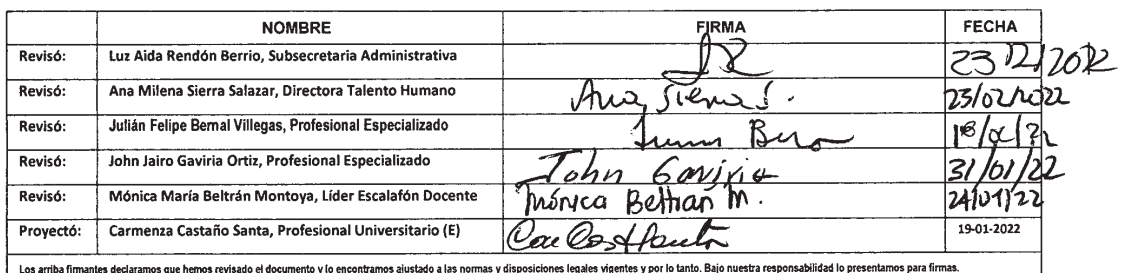 NOMBRE FIRMA FECHA
Revisó: Luz Aida Rendón Berrio, Subsecretaria Administrativa
Revisó: Ana Milena Sierra Salazar, Directora Talento Humano Ana Sierra S. 23/02/2022
Revisó: Julián Felipe Bernal Villegas, Profesional Especializado
Revisó: John Jairo Gaviria Ortiz, Profesional Especializado John Gaviria 31/01/22
Revisó: Mónica María Beltrán Montoya, Líder Escalafón Docente Mónica Beltrán M. 24/01/22
Proyectó: Carmenza Castaño Santa, Profesional Universitario (E) 19-01-2022
Los arriba firmantes declaramos que hemos revisado el documento y lo encontramos ajustado a las normas y disposiciones legales vigentes y por lo tanto. Bajo nuestra responsabilidad lo presentamos para firmas.